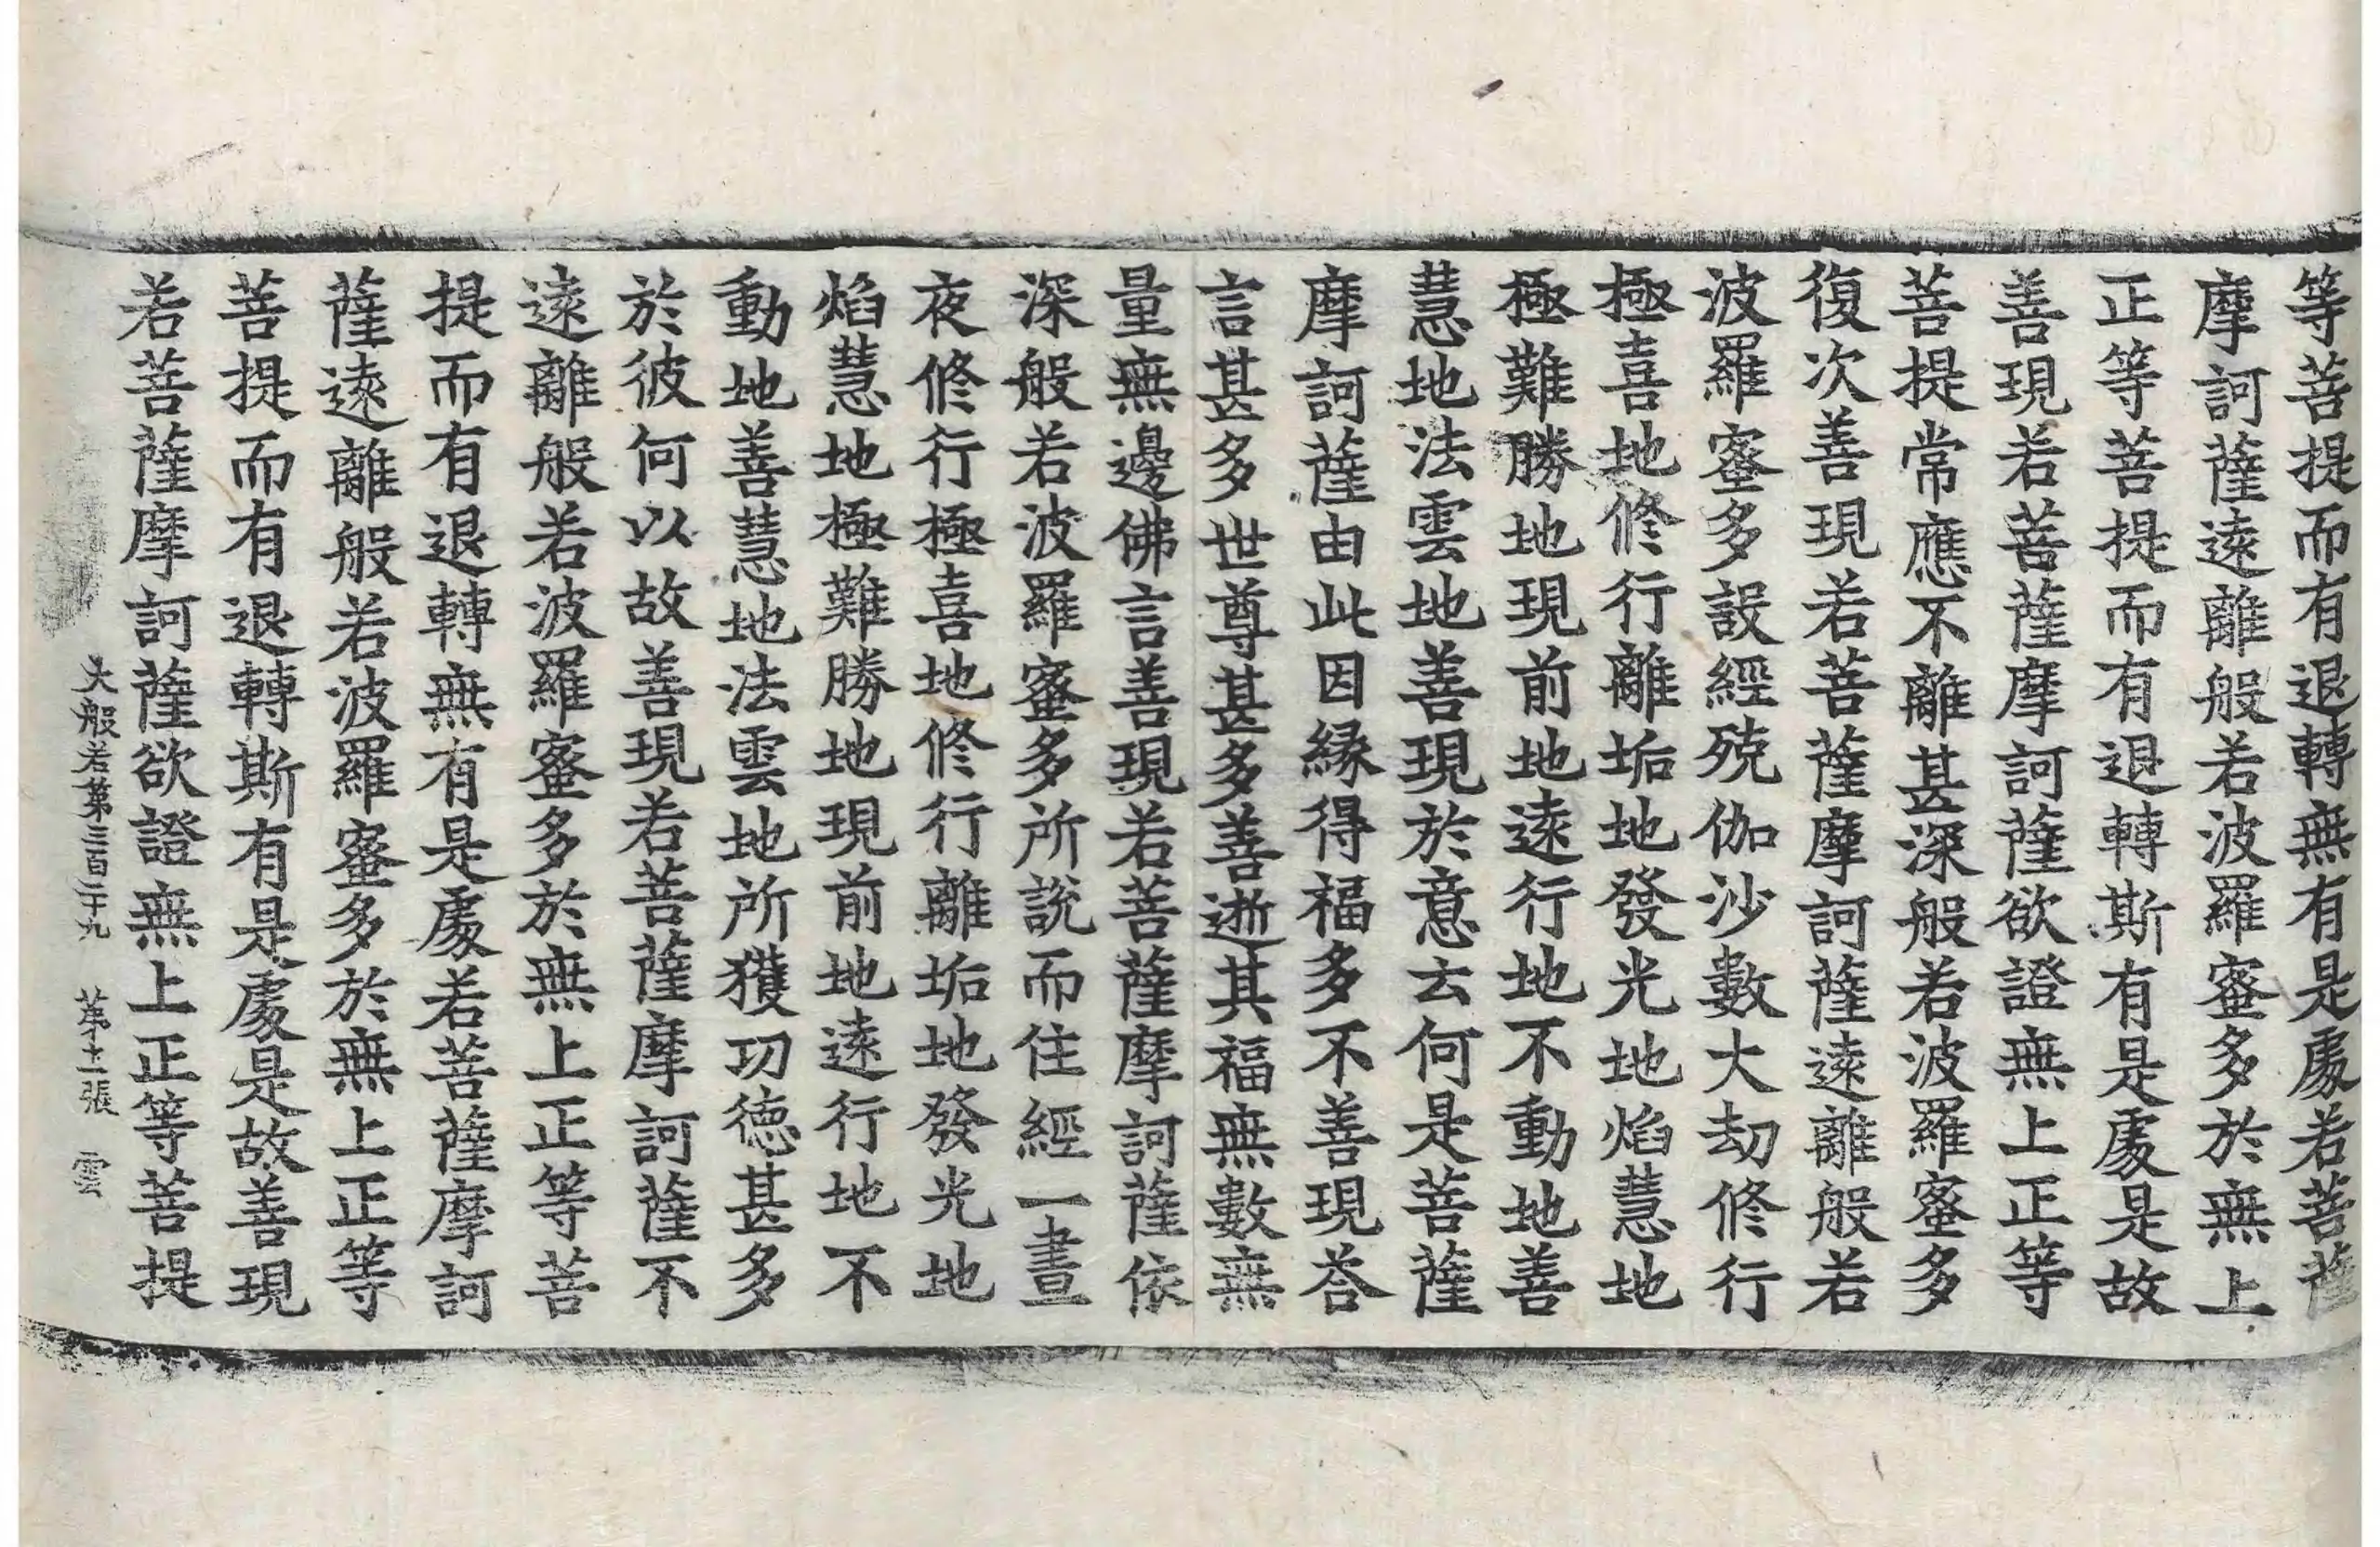 等菩提而有退轉無有是處若菩薩
摩訶薩遠離般若波羅蜜多於無上
正等菩提而有退轉斯有是處是故
善現若菩薩摩訶薩欲證無上正等
菩提常應不離甚深般若波羅蜜多
復次善現若菩薩摩訶薩遠離般若
波羅蜜多設經殑伽沙數大劫修行
極喜地修行離垢地發光地焰慧地
極難勝地現前地遠行地不動地善
慧地法雲地善現於意云何是菩薩
摩訶薩由此因緣得福多不善現荅
言甚多世尊甚多善逝其福無數無
量無邊佛言善現若菩薩摩訶薩依
深般若波羅蜜多所說而住經一晝
夜修行極喜地修行離垢地發光地
焰慧地極難勝地現前地遠行地不
動地善慧地法雲地所獲功德甚多
於彼何以故善現若菩薩摩訶薩不
遠離般若波羅蜜多於無上正等菩
提而有退轉無有是處若菩薩摩訶
薩遠離般若波羅蜜多於無上正等
菩提而有退轉斯有是處是故善現
若菩薩摩訶薩欲證無上正等菩提
大般若第三百二十九 第十二張 雲